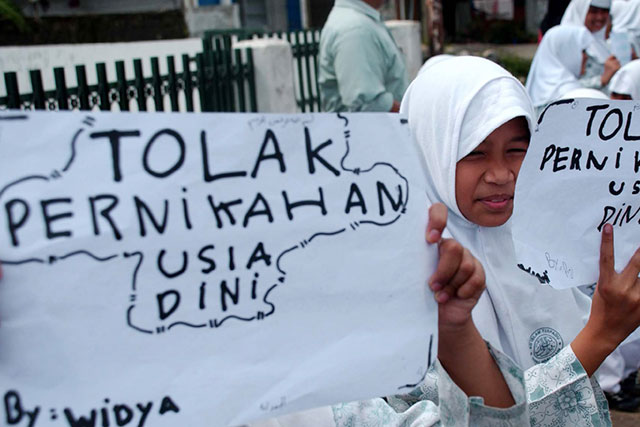 TOLAK
PERNIKAHAN
USIA
DINI
By: WIDYA
TOL
PERNIK
US
DINI